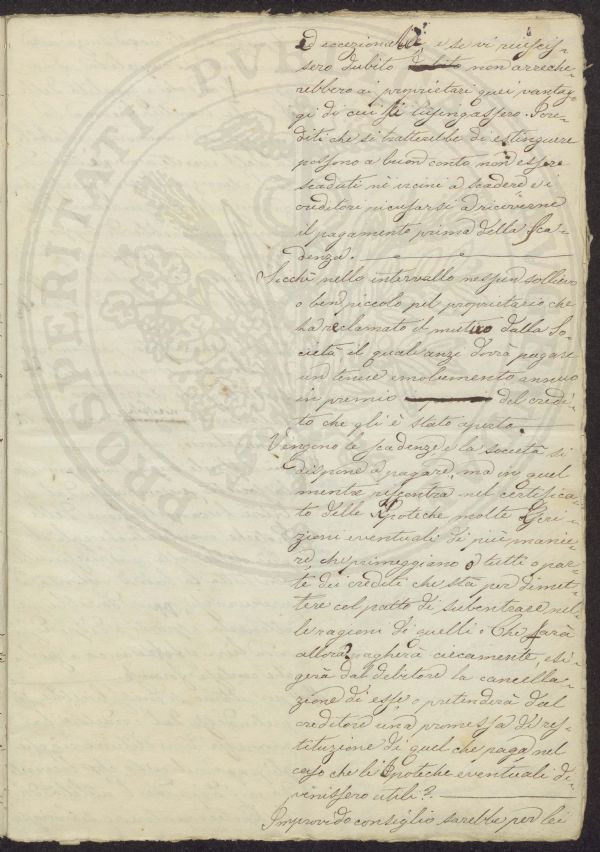 ed eccezionabili e se vi riuscis-
sero dubito non arreche-
rebbero ai proprietari quei vantag-
gi di cui si lusingassero. I cre-
diti che si tratterebbe di estinguere
possono a buon conto non essere
scaduti nè vicini a scadere e i
creditori ricusarsi a riceverne
il pagamento prima della sca-
denza.
Sicchè nello intervallo nessun sollievo
o ben piccolo pel proprietario che
ha reclamato il mutuo dalla So-
cietà, il quale anzi dovrà pagare
un tenue emolumento annuo
in premio del credi-
to che gli è stato aperto.
Vengono le scadenze e la società si
dispone a pagare, ma in quel
mentre riscontra nel certifica-
to delle Ipoteche molte Iscri-
zioni eventuali di più manie-
re che primeggiano a tutti o par-
te dei crediti che sta per dimet-
tere col patto di subentrare nel-
le ragioni di quelli. Che farà
allora? pagherà ciecamente, esi-
gerà dal debitore la cancella-
zione di esse o pretenderà dal
creditore una promessa di res-
tituzione di quel che paga nel
caso che le Ipoteche eventuali di-
venissero utili?
Improvido consiglio sarebbe per lei
PROSPERITATI PUBL